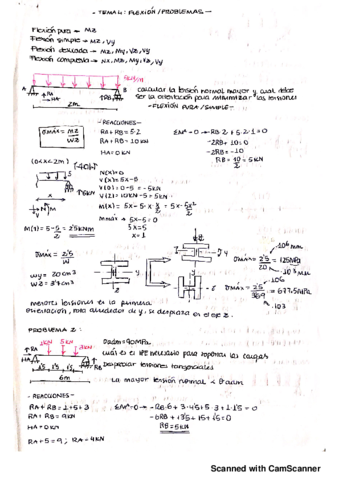 - TEMA 4: FLEXIÓN/PROBLEMAS -
Flexión pura → Mz
Flexión simple → Mz, Vy
Flexión desviada → Mz, My, Vz, Vy
Flexión compuesta → Nx, Mz, My, Vz, Vy
5KN/m
A
B
RA
HA
RB
2m
calcular la tensión normal mayor y cual debe
ser la orientación para minimizar las tensiones
- FLEXIÓN PURA/SIMPLE -
σmáx = Mz
Wz
- REACCIONES -
RA + RB = 5·2
RA + RB = 10 KN
HA = 0 KN
ΣMA = 0 → RB·2 + 5·2·1 = 0
-2RB + 10 = 0
-2RB = -10
RB = 10 = 5KN
2
(0<x<2m)
5
5KN
x
N
M
V
N(x) = 0
V(x) = 5x - 5
V(0) = 0 - 5 = -5KN
V(2) = 10KN - 5 = 5KN
M(x) = 5x - 5·x·x/2 = 5x - 5x²/2
M máx → 5x - 5 = 0
5x = 5
x = 1
M(1) = 5 - 5/2 = 2'5KNm
σmáx = 2'5
W
Wy = 20 cm³
y
z
σmáx = 2'5 = 125MPa
20
·10⁶ mm
·10³ mm
·10⁶
·10³
menores tensiones es la primera
orientación, rota alrededor de y, se desplaza en el eje z.
PROBLEMA 2:
1KN
5KN
3KN
RA
HA
RB
1'5
1'5
6m
σadm = 90MPa
cuál es el IPE necesario para soportar las cargas
Despreciar tensiones tangenciales
La mayor tensión normal < σadm
- REACCIONES -
RA + RB = 1 + 5 + 3
RA + RB = 9KN
HA = 0KN
RA + 5 = 9; RA = 4KN
ΣMA = 0 → -RB·6 + 3·4'5 + 5·3 + 1·1'5 = 0
RB = 5KN
Scanned with CamScanner